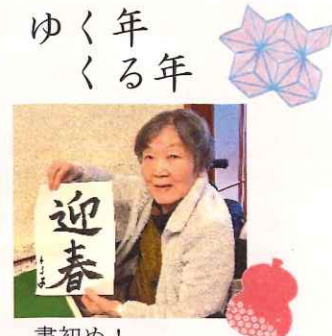 ゆく年
くる年
迎春
書初め！